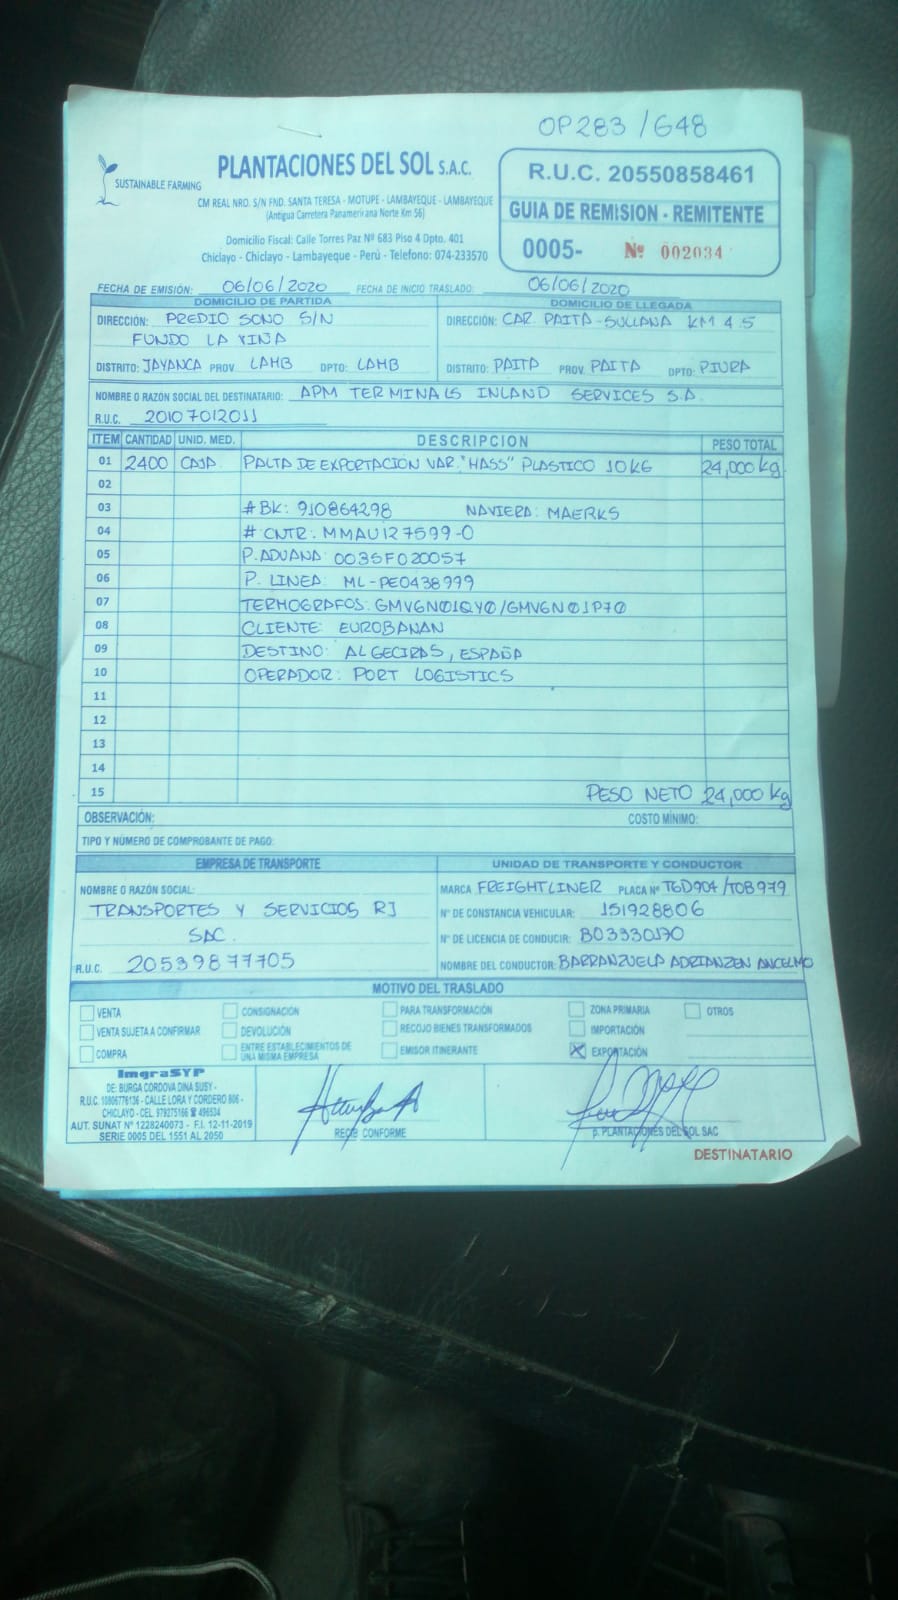 OP283/648
SUSTAINABLE FARMING
PLANTACIONES DEL SOL S.A.C.
CM REAL NRO. S/N FND. SANTA TERESA - MOTUPE - LAMBAYEQUE - LAMBAYEQUE
(Antigua Carretera Panamericana Norte Km 56)
Domicilio Fiscal: Calle Torres Paz Nº 683 Piso 4 Dpto. 401
Chiclayo - Chiclayo - Lambayeque - Perú - Telefono: 074-233570
R.U.C. 20550858461
GUIA DE REMISION - REMITENTE
0005- Nº 002034
FECHA DE EMISIÓN: 06/06/2020 FECHA DE INICIO TRASLADO: 06/06/2020
DOMICILIO DE PARTIDA
DIRECCIÓN: PREDIO SONO S/N
FUNDO LA VIÑA
DISTRITO: JAYANCA PROV LAMB DPTO: LAMB
DOMICILIO DE LLEGADA
DIRECCIÓN: CAR. PAITA-SULLANA KM 4.5
DISTRITO: PAITA PROV. PAITA DPTO: PIURA
NOMBRE O RAZÓN SOCIAL DEL DESTINATARIO: APM TERMINALS INLAND SERVICES S.A.
R.U.C. 20107012011
ITEM CANTIDAD UNID. MED. DESCRIPCION PESO TOTAL
01 2400 CAJA PALTA DE EXPORTACION VAR. "HASS" PLASTICO 10KG 24,000 kg
02
03 # BK: 910864298 NAVIERA: MAERKS
04 # CNTR: MMAU127599-0
05 P. ADUANA: 0035F020057
06 P. LINEA: ML-PE0438999
07 TERMOGRAFOS: GMVGN01QY0/GMVGN01P70
08 CLIENTE: EUROBANAN
09 DESTINO: ALGECIRAS, ESPAÑA
10 OPERADOR: PORT LOGISTICS
11
12
13
14
15 PESO NETO 24,000 kg
OBSERVACIÓN: COSTO MÍNIMO:
TIPO Y NÚMERO DE COMPROBANTE DE PAGO:
EMPRESA DE TRANSPORTE
NOMBRE O RAZÓN SOCIAL:
TRANSPORTES Y SERVICIOS RJ
SAC.
R.U.C. 20539877705
UNIDAD DE TRANSPORTE Y CONDUCTOR
MARCA FREIGHTLINER PLACA Nº T6D904/TOB979
Nº DE CONSTANCIA VEHICULAR: 151928806
Nº DE LICENCIA DE CONDUCIR: B03330170
NOMBRE DEL CONDUCTOR: BARRANZUELA ADRIANZEN ANCELMO
MOTIVO DEL TRASLADO
VENTA CONSIGNACIÓN PARA TRANSFORMACIÓN ZONA PRIMARIA OTROS
VENTA SUJETA A CONFIRMAR DEVOLUCIÓN RECOJO BIENES TRANSFORMADOS IMPORTACIÓN
COMPRA ENTRE ESTABLECIMIENTOS DE UNA MISMA EMPRESA EMISOR ITINERANTE X EXPORTACIÓN
ImgraSYP
DE: BURGA CORDOVA DINA SUSY -
R.U.C. 10806776136 - CALLE LORA Y CORDERO 806 -
CHICLAYO - CEL. 979275166 ☎ 496534
AUT. SUNAT Nº 1228240073 - F.I. 12-11-2019
SERIE 0005 DEL 1551 AL 2050
RECIBI CONFORME
p. PLANTACIONES DEL SOL SAC
DESTINATARIO